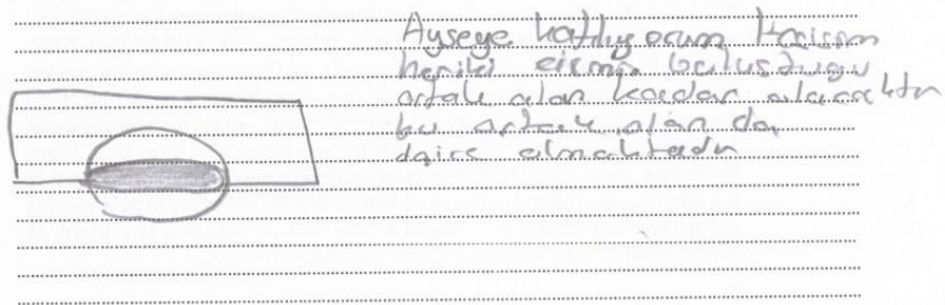 Ayşeye katılıyorum Kesişim
her iki cismin buluştuğu
ortak alan kadar olacaktır
bu ortak alan da
daire olmaktadır